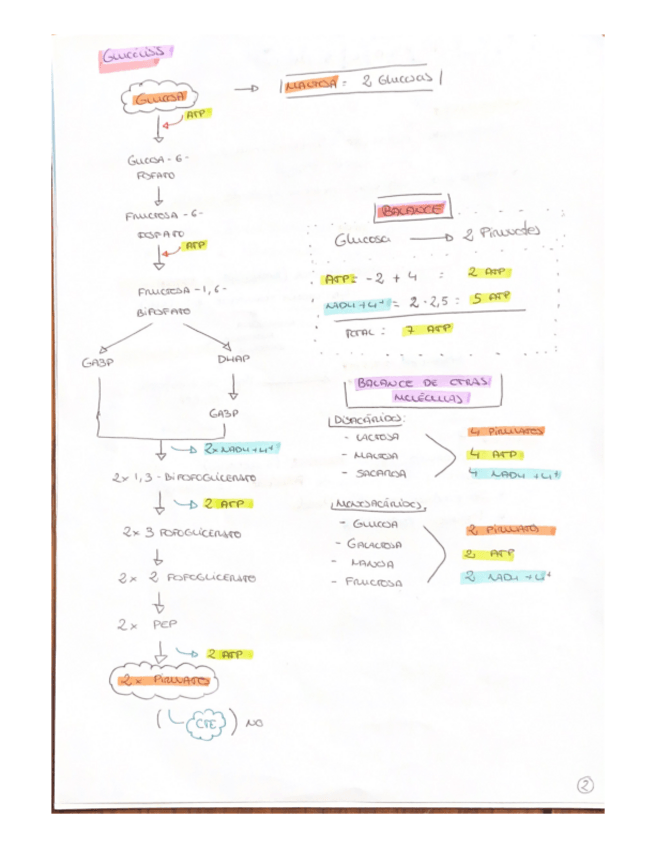 GLUCÓLISIS
GLUCOSA → | MALTOSA = 2 GLUCOSAS |
ATP
GLUCOSA - 6 -
FOSFATO
FRUCTOSA - 6 -
FOSFATO
ATP
FRUCTOSA - 1,6 -
BIFOSFATO
GA3P DHAP
GA3P
2x NADH + H+
2x 1,3 - BIFOSFOGLICERATO
2 ATP
2x 3 FOSFOGLICERATO
2x 2 FOSFOGLICERATO
2x PEP
2 ATP
2x PIRUVATO
( CTE ) NO
BALANCE
Glucosa → 2 Piruvatos
ATP = -2 + 4 = 2 ATP
NADH + H+ = 2 · 2,5 = 5 ATP
TOTAL : 7 ATP
BALANCE DE OTRAS
MOLÉCULAS
DISACÁRIDOS:
- LACTOSA
- MALTOSA
- SACAROSA
4 PIRUVATOS
4 ATP
4 NADH + H+
MONOSACÁRIDOS:
- GLUCOSA
- GALACTOSA
- MANOSA
- FRUCTOSA
2 PIRUVATOS
2 ATP
2 NADH + H+
2